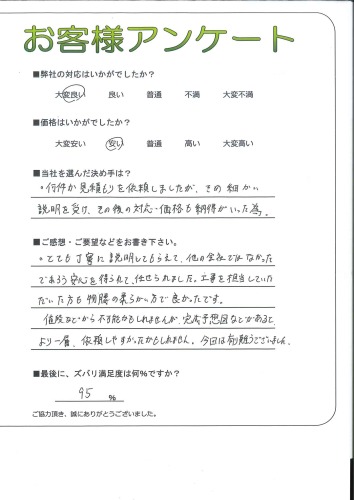 お客様アンケート
■弊社の対応はいかがでしたか?
大変良い 良い 普通 不満 大変不満
■価格はいかがでしたか?
大変安い 安い 普通 高い 大変高い
■当社を選んだ決め手は?
・何件か見積もりを依頼しましたが、その細かい
説明を受け、その後の対応・価格も納得がいった為。
■ご感想・ご要望などをお書き下さい。
・とても丁寧に説明してもらえて、他の会社ではなかった
であろう安心を得られて、任せられました。工事を担当していた
だいた方も物腰の柔らかい方で良かったです。
値段などから不可能かもしれませんが、完成予想図などがあると
より一層、依頼しやすかったかもしれません。今回は有難うございました。
■最後に、ズバリ満足度は何%ですか?
95 %
ご協力頂き、誠にありがとうございました。